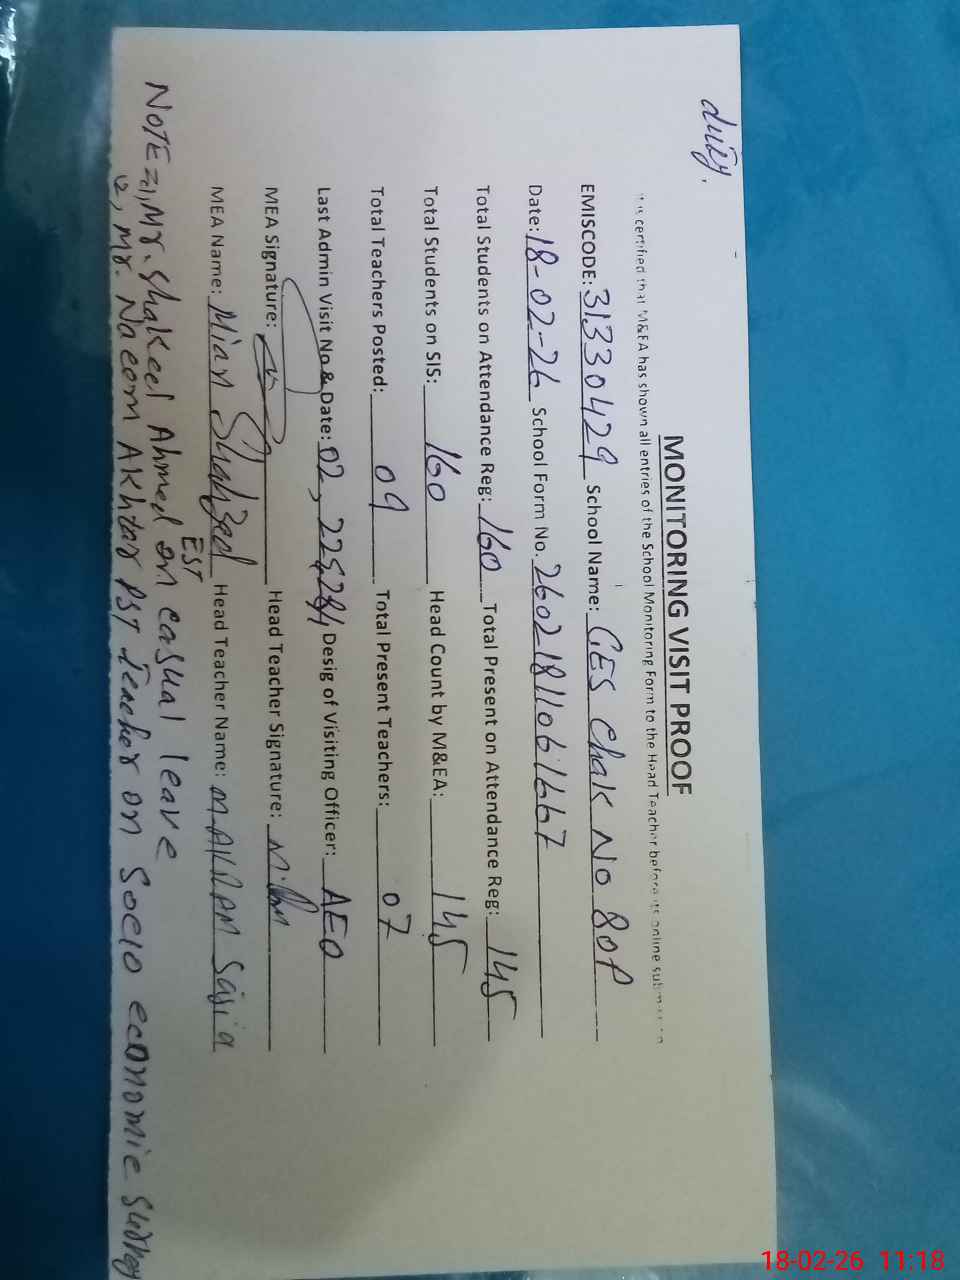 MONITORING VISIT PROOF
It is certified that M&EA has shown all entries of the School Monitoring Form to the Head Teacher before its online submission
EMISCODE: 31330429 School Name: GES Chak No 80P
Date: 18-02-26 School Form No. 26021811061667
Total Students on Attendance Reg: 160 Total Present on Attendance Reg: 145
Total Students on SIS: 160 Head Count by M&EA: 145
Total Teachers Posted: 09 Total Present Teachers: 07
Last Admin Visit No & Date: 02, Desig of Visiting Officer: AEO
MEA Signature: Head Teacher Signature:
MEA Name: Mian Shahzad Head Teacher Name: M. AKRAM
EST
NOTE=1, Mr. Shakeel Ahmed on casual leave
2, Mr. Naeem Akhtar PST Teacher on Socio economic Survey
duty.
18-02-26 11:18